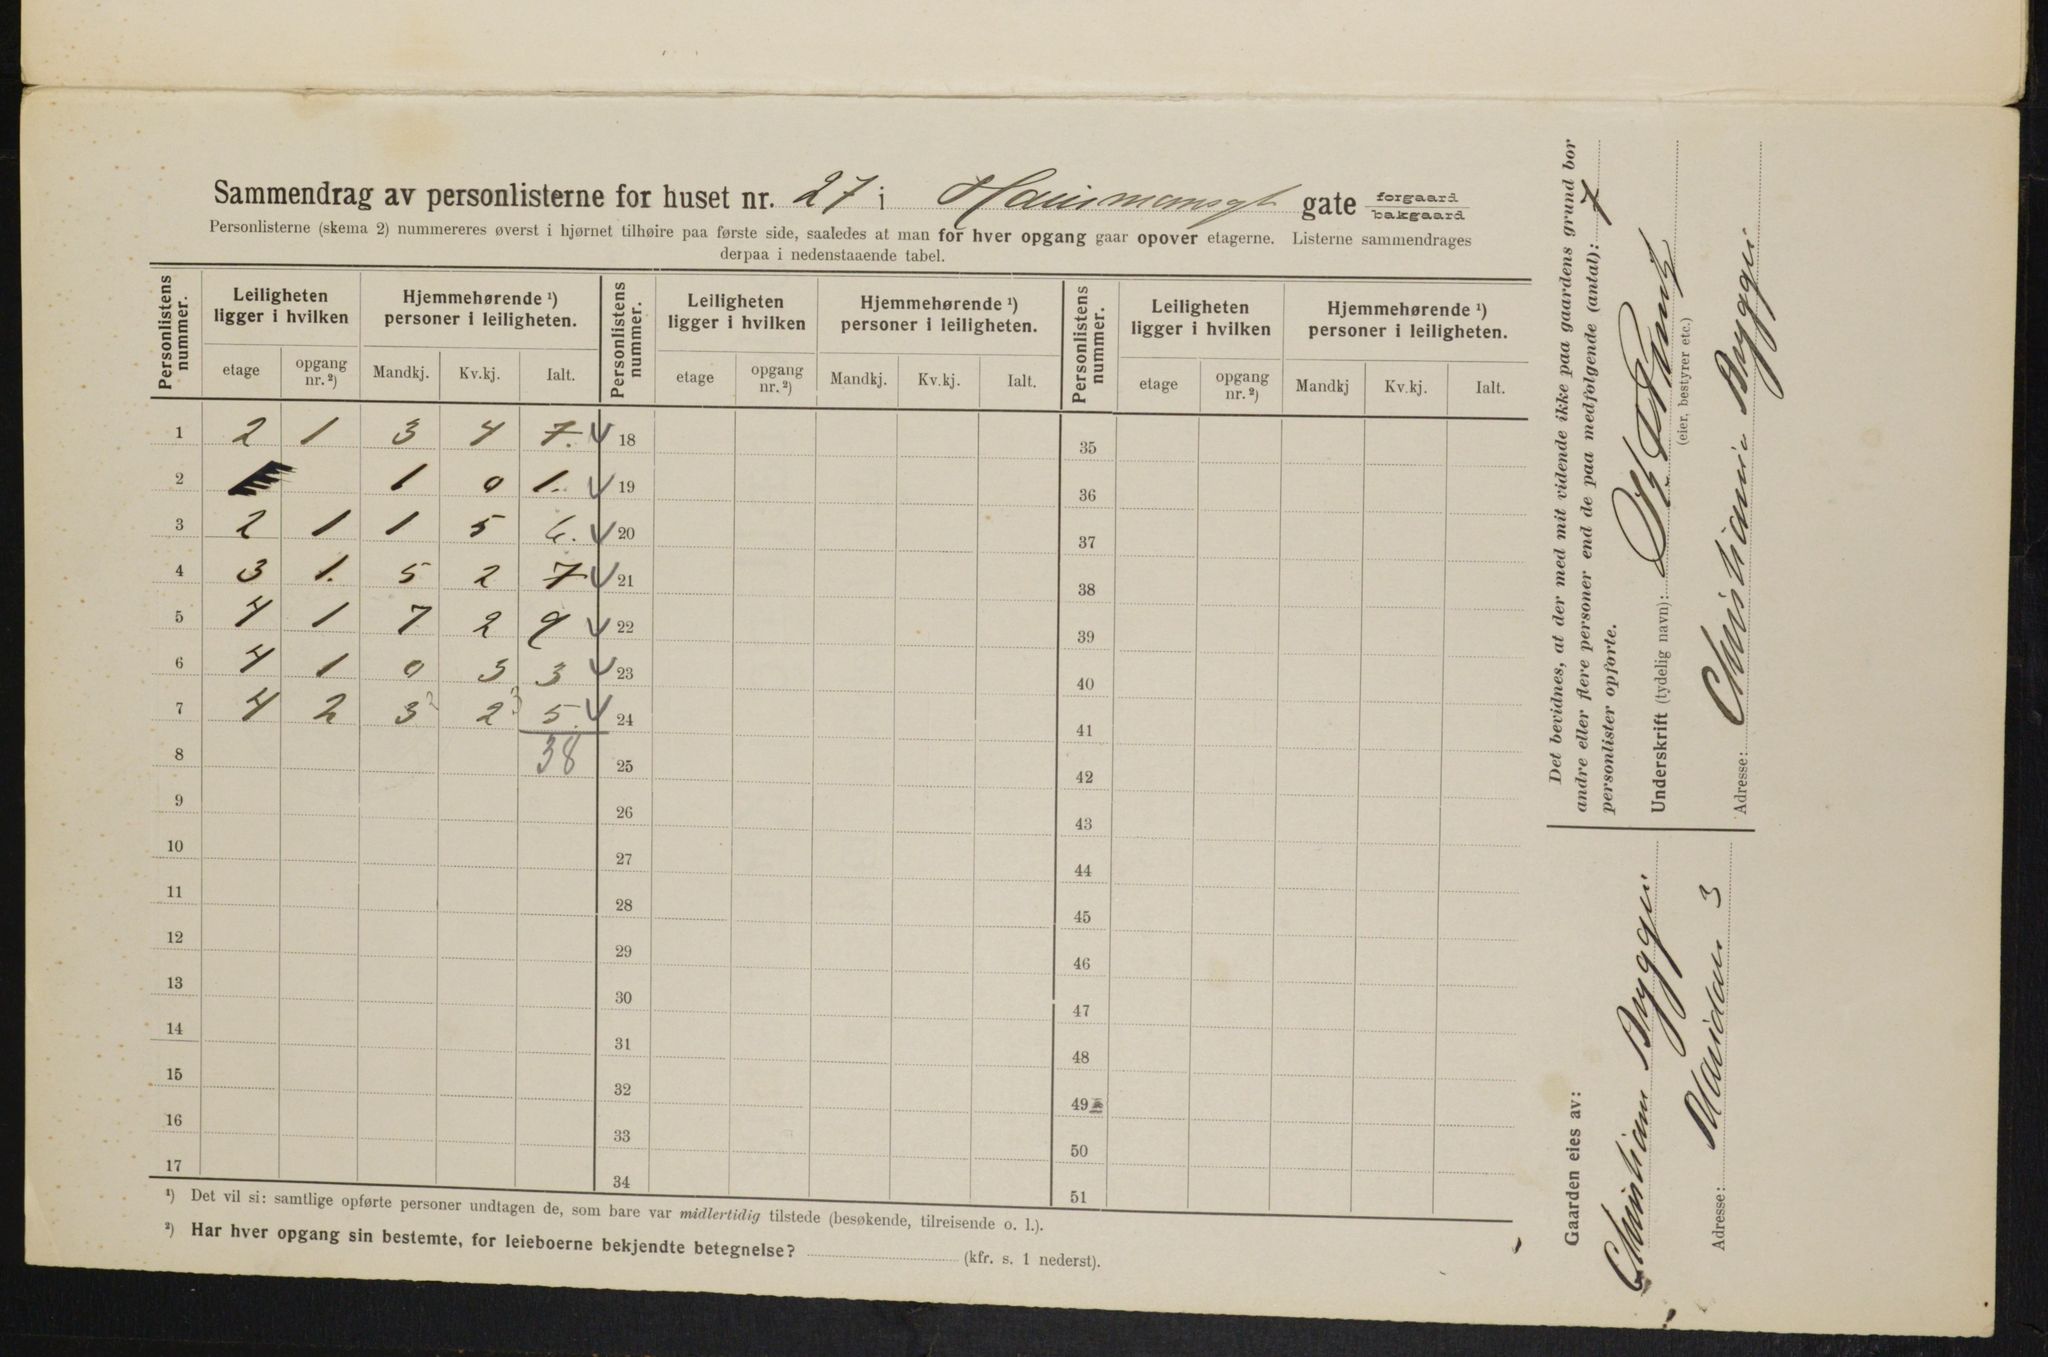 Sammendrag av personlisterne for huset nr. 27 i Hausmansgt gate forgaard bakgaard
Personlisterne (skema 2) nummereres øverst i hjørnet tilhøire paa første side, saaledes at man for hver opgang gaar opover etagerne. Listerne sammendrages
derpaa i nedenstaaende tabel.
Personlistens nummer. Leiligheten ligger i hvilken Hjemmehørende ¹) personer i leiligheten. Personlistens nummer. Leiligheten ligger i hvilken Hjemmehørende ¹) personer i leiligheten. Personlistens nummer. Leiligheten ligger i hvilken Hjemmehørende ¹) personer i leiligheten.
etage opgang nr. ²) Mandkj. Kv.kj. Ialt. etage opgang nr. ²) Mandkj. Kv.kj. Ialt. etage opgang nr. ²) Mandkj Kv.kj. Ialt.
1 2 1 3 4 7. 18 35
2 1 0 1. 19 36
3 2 1 1 5 6. 20 37
4 3 1. 5 2 7 21 38
5 4 1 7 2 9 22 39
6 4 1 0 3 3 23 40
7 4 2 3 2 5. 24 41
8 38 25 42
9 26 43
10 27 44
11 28 45
12 29 46
13 30 47
14 31 48
15 32 49
16 33 50
17 34 51
¹) Det vil si: samtlige opførte personer undtagen de, som bare var midlertidig tilstede (besøkende, tilreisende o. l.).
²) Har hver opgang sin bestemte, for leieboerne bekjendte betegnelse? (kfr. s. 1 nederst).
Det bevidnes, at der med mit vidende ikke paa gaardens grund bor
andre eller flere personer end de paa medfølgende (antal): 7
personlister opførte.
Underskrift (tydelig navn):
(eier, bestyrer etc.)
Adresse: Christiania Byggeri
Gaarden eies av:
Christiania Byggeri
Adresse: Maridalsv 3